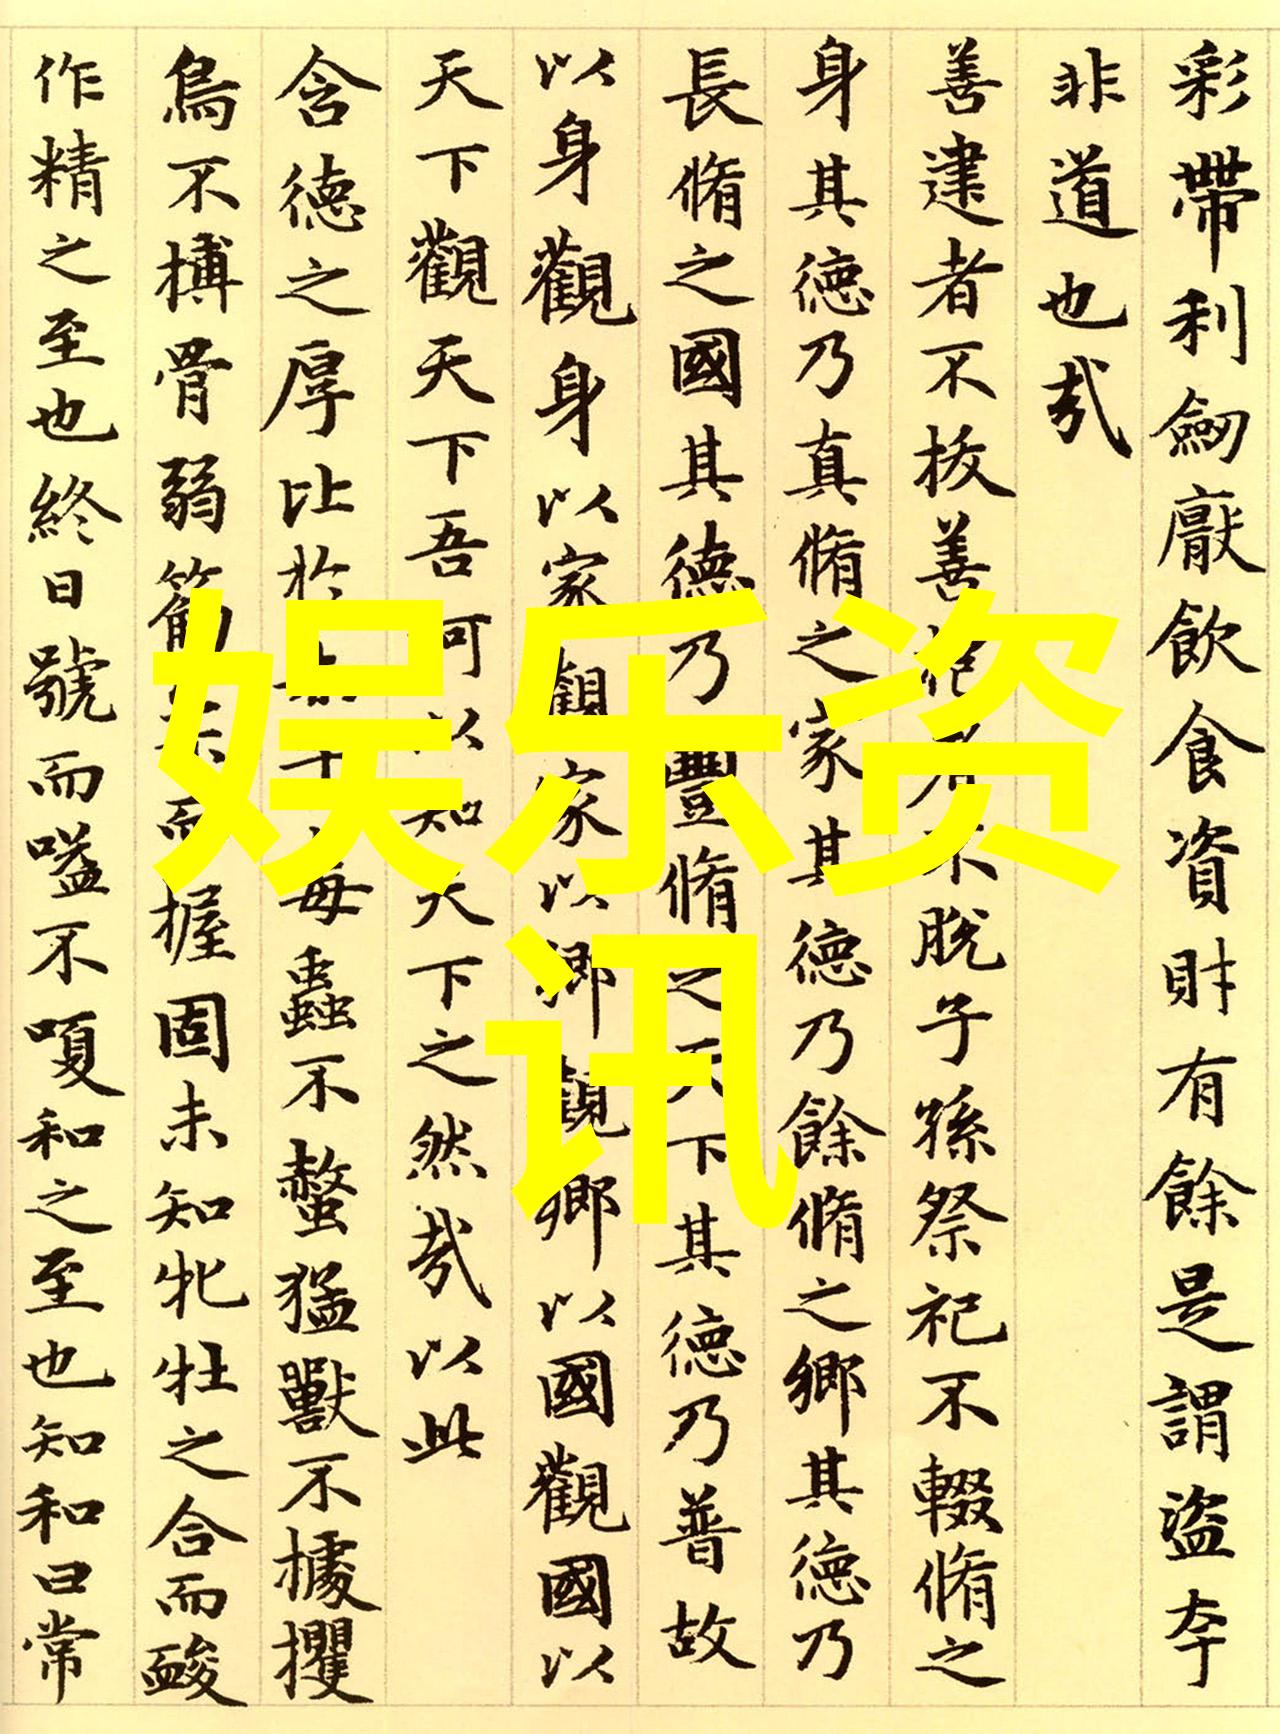 彩帶利劒厭飲食資財有餘是謂盜夸
非道也㢤
善建者不拔善者不脫子孫祭祀不輟脩之
身其德乃真脩之家其德乃餘脩之鄉其德乃
長脩之國其德乃豐脩之天下其德乃普故
以身觀身以家觀家以鄉觀鄉以國觀國以
天下觀天下吾何以知天下之然㢤以此
含德之厚比於赤子毒蟲不螫猛獸不據攫
鳥不搏骨弱筋柔而握固未知牝牡之合而酸
作精之至也終日號而嗌不嗄和之至也知和曰常
娱乐资
讯